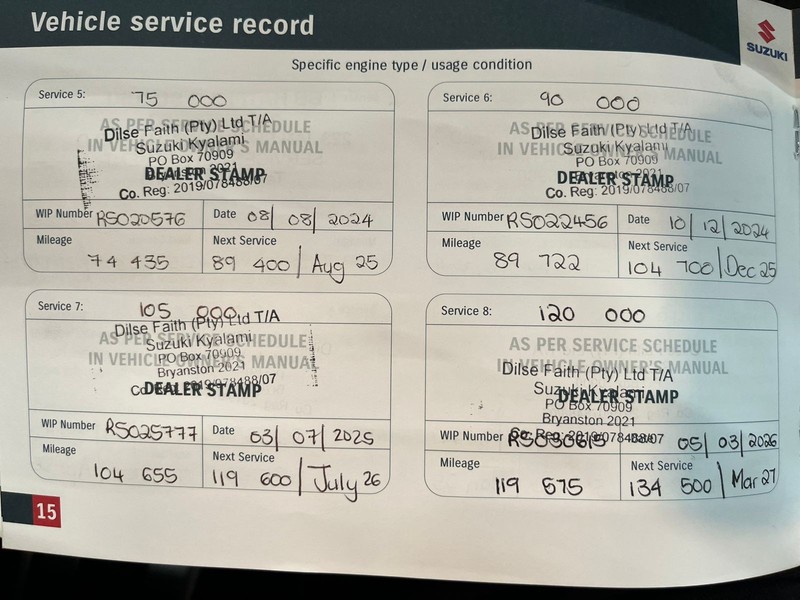 Vehicle service record
SUZUKI
Specific engine type / usage condition
Service 5: 75 000
AS PER SERVICE SCHEDULE
IN VEHICLE OWNER'S MANUAL
DEALER STAMP
Dilse Faith (Pty) Ltd T/A
Suzuki Kyalami
PO Box 70909
Bryanston 2021
Co. Reg: 2019/078488/07
WIP Number RS020576 Date 08/ 08/ 2024
Mileage Next Service
74 435 89 400/ Aug 25
Service 6: 90 000
AS PER SERVICE SCHEDULE
IN VEHICLE OWNER'S MANUAL
DEALER STAMP
Dilse Faith (Pty) Ltd T/A
Suzuki Kyalami
PO Box 70909
Bryanston 2021
Co. Reg: 2019/078488/07
WIP Number RS022456 Date 10/ 12/ 2024
Mileage Next Service
89 722 104 700/ Dec 25
Service 7: 105 000
AS PER SERVICE SCHEDULE
IN VEHICLE OWNER'S MANUAL
DEALER STAMP
Dilse Faith (Pty) Ltd T/A
Suzuki Kyalami
PO Box 70909
Bryanston 2021
2019/078488/07
WIP Number RS025777 Date 03/ 07/ 2025
Mileage Next Service
104 655 119 600/ July 26
Service 8: 120 000
AS PER SERVICE SCHEDULE
IN VEHICLE OWNER'S MANUAL
DEALER STAMP
Dilse Faith (Pty) Ltd T/A
Suzuki Kyalami
PO Box 70909
Bryanston 2021
Co. Reg: 2019/078488/07
WIP Number Date 05/ 03/ 2026
Mileage Next Service
119 575 134 500/ Mar 27
15